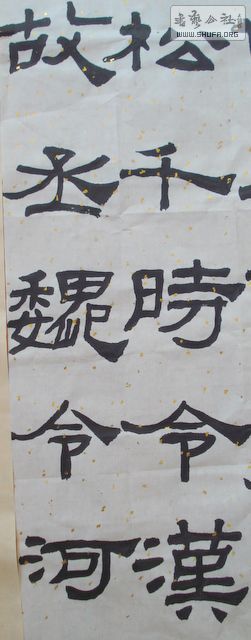 松千時令漢
故丞魏令河
書藝公社
WWW.SHUFA.ORG